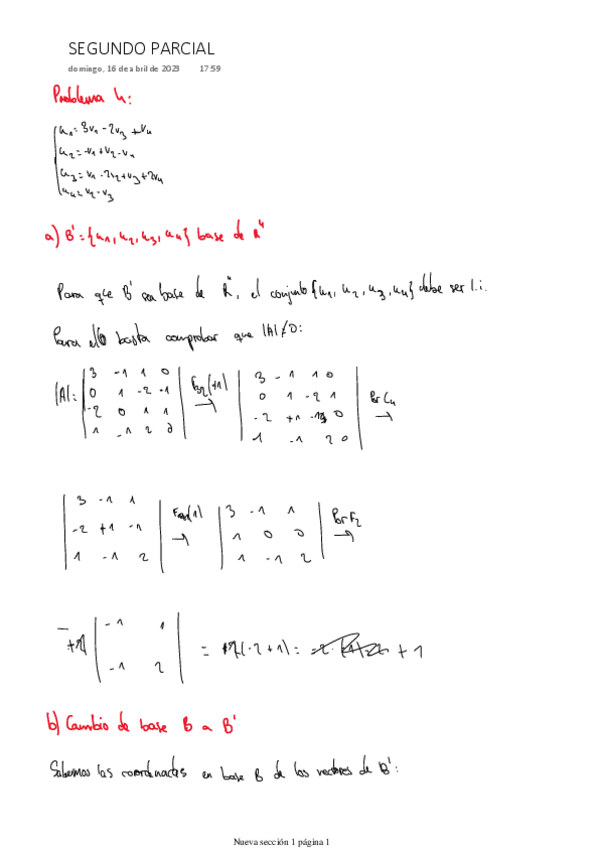 SEGUNDO PARCIAL
domingo, 16 de abril de 2023 17:59
Problema 4:
u₁=3v₁-2v₃+v₄
u₂=-v₁+v₂-v₄
u₃=v₁-2v₂+v₃+2v₄
u₄=v₂-v₃
a) B'={u₁,u₂,u₃,u₄} base de R⁴
Para que B' sea base de R⁴, el conjunto {u₁,u₂,u₃,u₄} debe ser l.i.
Para ello basta comprobar que |A|≠0:
|A|= | 3 -1 1 0 | F₃₂(+1) → | 3 -1 1 0 | Por C₄ →
| 0 1 -2 -1 | | 0 1 -2 1 |
| -2 0 1 1 | | -2 +1 -1 0 |
| 1 -1 2 0 | | 1 -1 2 0 |
| 3 -1 1 | (1) → | 3 -1 1 | Por F₂ →
| -2 +1 -1 | | 1 0 0 |
| 1 -1 2 | | 1 -1 2 |
| -1 1 |
| -1 2 | = (-2+1)= +1
b) Cambio de base B a B'
Sabemos las coordenadas en base B de los vectores de B':
Nueva sección 1 página 1